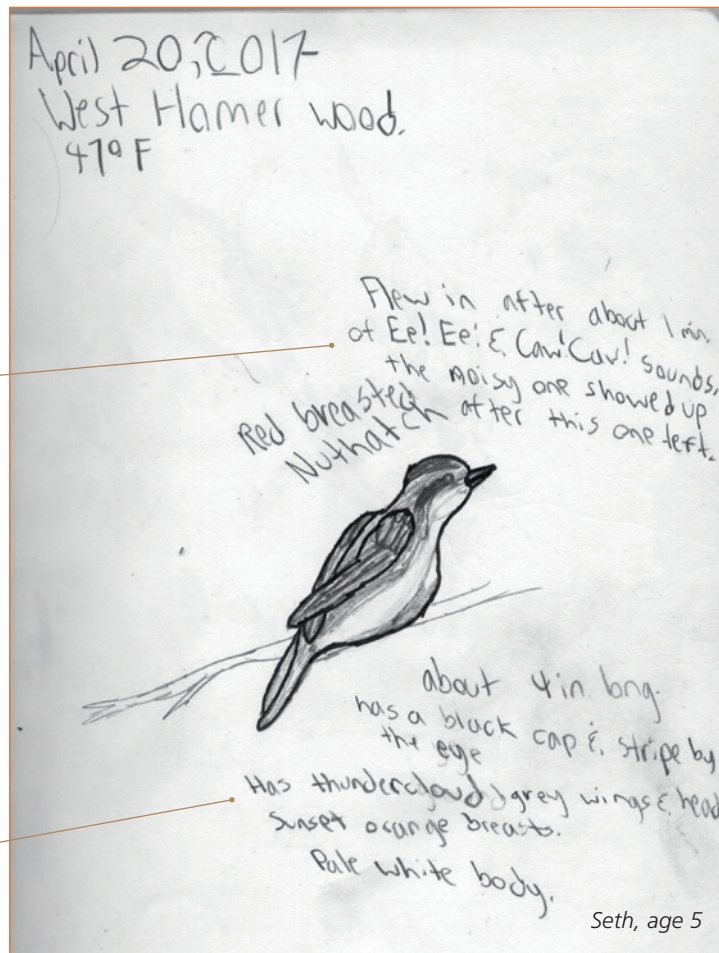 April 20, 2017
West Hamer wood.
47° F
Flew in after about 1 min.
of Ee! Ee! & Caw! Caw! sounds.
the noisy one showed up
after this one left.
Red breasted
Nuthatch
about 4 in. long.
has a black cap & stripe by
the eye
Has thundercloud grey wings & head
Sunset orange breasts.
Pale white body.
Seth, age 5